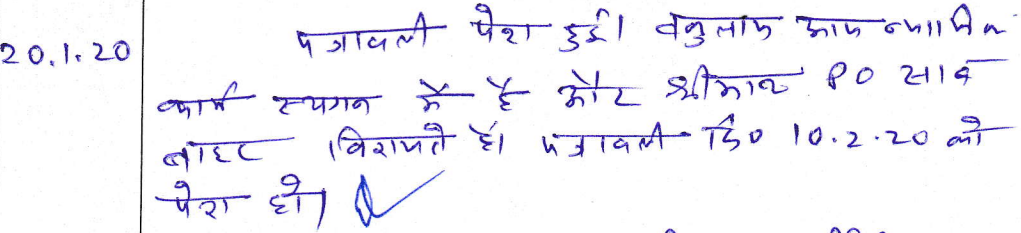 20.1.20 पत्रावली पेश हुई। वकुलाय आय न्यायिक
कार्य स्थगन में है और श्रीमान PO साब
बाहर विराजते है। पत्रावली दि० 10.2.20 को
पेश हो।